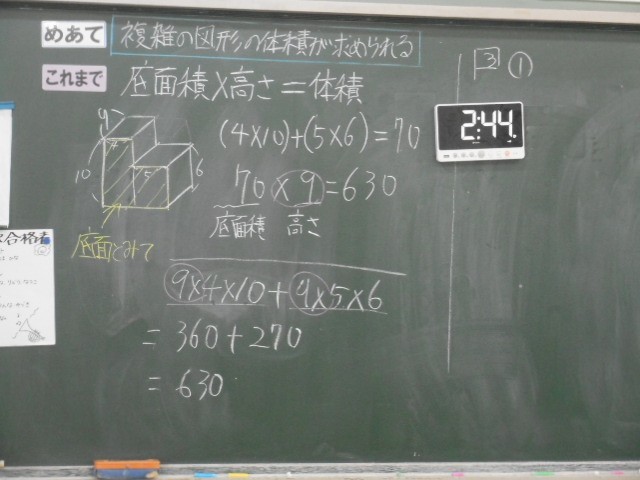 めあて 複雑の図形の体積が求められる
これまで 底面積×高さ=体積
(4×10)+(5×6)=70
70×9=630
底面積 高さ
9 4 5 10 6
底面とみて
9×4×10+9×5×6
=360+270
=630
3 ①
2:44
合格